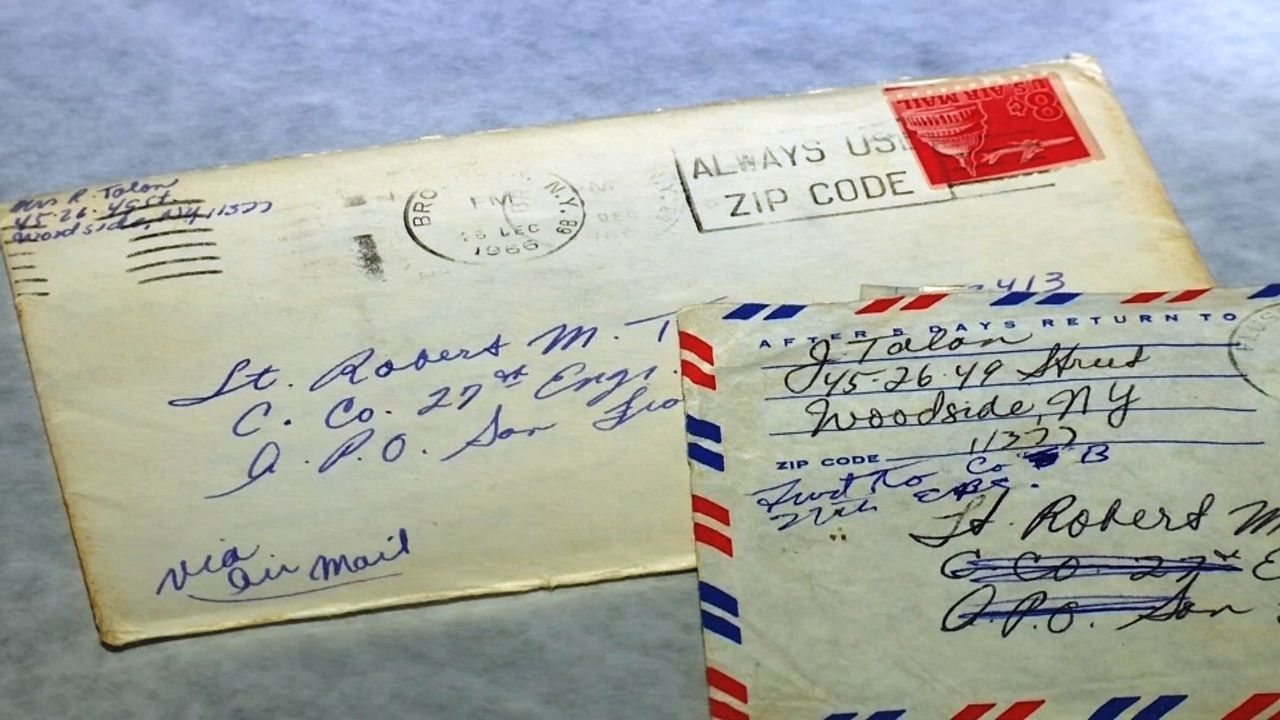 Mrs R. Talon
45-26-49 St.
Woodside, NY 11377
BRO N.Y. 89
PM
28 DEC
1966
ALWAYS US
ZIP CODE
8¢
U.S. AIR MAIL
Lt. Robert M. T
C. Co. 27th Engr.
A.P.O. San Fra
via
Air Mail
413
AFTER 5 DAYS RETURN TO
J. Talon
45-26-49 Street
Woodside, NY
11377
ZIP CODE
Co B
Lt. Robert M
C Co 27th E
A.P.O. San